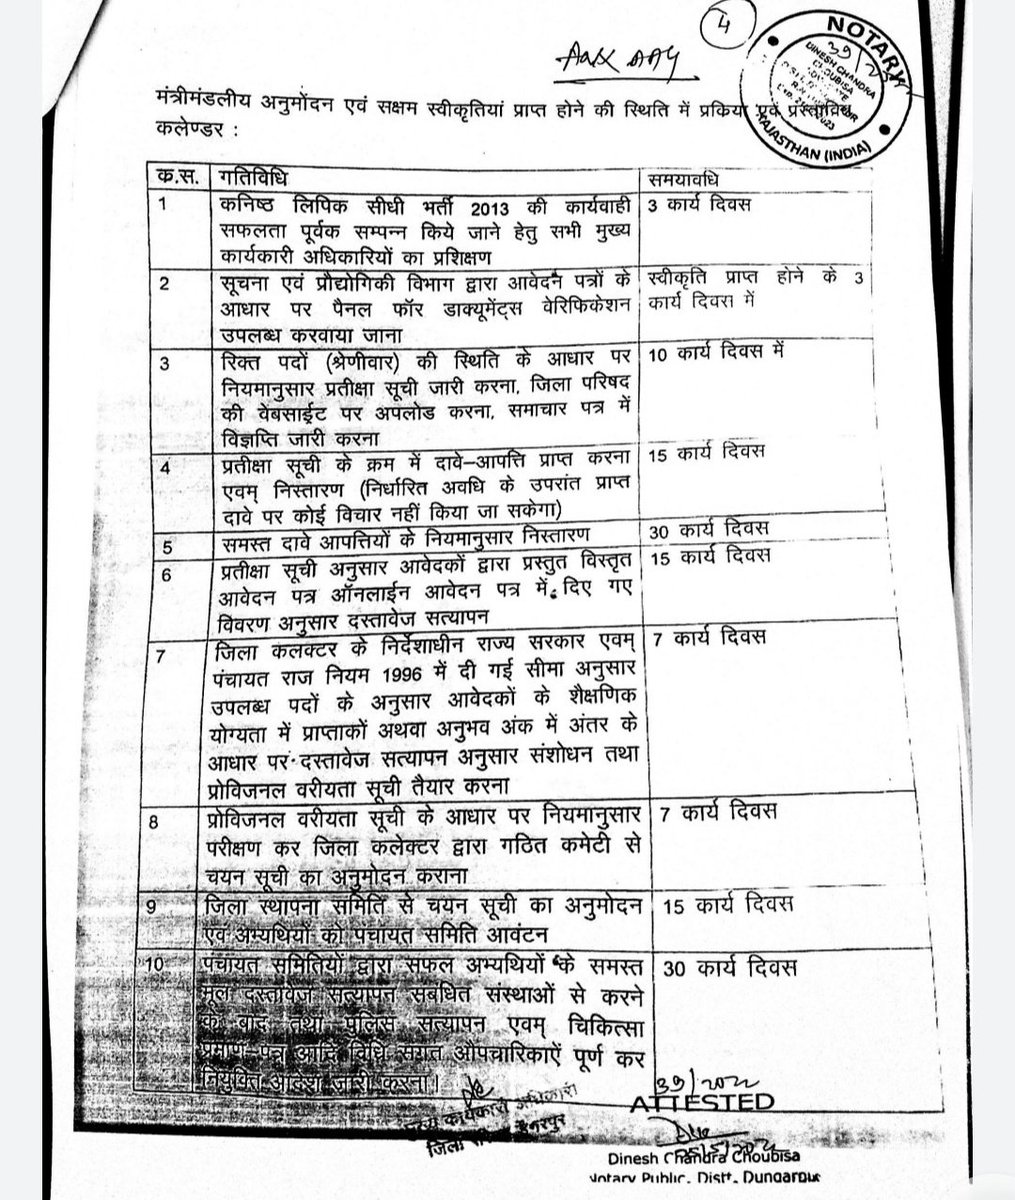 4
NOTARY
39/2022
DINESH CHANDRA
CHOUBISA
RAJASTHAN (INDIA)
मंत्रीमंडलीय अनुमोदन एवं सक्षम स्वीकृतियां प्राप्त होने की स्थिति में प्रकिया एवं प्रस्तावित
कलेण्डर :
क.स. गतिविधि समयावधि
1 कनिष्ठ लिपिक सीधी भर्ती 2013 की कार्यवाही 3 कार्य दिवस
सफलता पूर्वक सम्पन्न किये जाने हेतु सभी मुख्य
कार्यकारी अधिकारियों का प्रशिक्षण
2 सूचना एवं प्रौद्योगिकी विभाग द्वारा आवेदन पत्रों के स्वीकृति प्राप्त होने के 3
आधार पर पैनल फॉर डाक्यूमेंट्स वेरिफिकेशन कार्य दिवस में
उपलब्ध करवाया जाना
3 रिक्त पदों (श्रेणीवार) की स्थिति के आधार पर 10 कार्य दिवस में
नियमानुसार प्रतीक्षा सूची जारी करना, जिला परिषद
की वेबसाईट पर अपलोड करना, समाचार पत्र में
विज्ञप्ति जारी करना
4 प्रतीक्षा सूची के क्रम में दावे–आपत्ति प्राप्त करना 15 कार्य दिवस
एवम् निस्तारण (निर्धारित अवधि के उपरांत प्राप्त
दावे पर कोई विचार नहीं किया जा सकेगा)
5 समस्त दावे आपत्तियों के नियमानुसार निस्तारण 30 कार्य दिवस
6 प्रतीक्षा सूची अनुसार आवेदकों द्वारा प्रस्तुत विस्तृत 15 कार्य दिवस
आवेदन पत्र ऑनलाईन आवेदन पत्र में दिए गए
विवरण अनुसार दस्तावेज सत्यापन
7 जिला कलक्टर के निर्देशाधीन राज्य सरकार एवम् 7 कार्य दिवस
पंचायत राज नियम 1996 में दी गई सीमा अनुसार
उपलब्ध पदों के अनुसार आवेदकों के शैक्षणिक
योग्यता में प्राप्ताकों अथवा अनुभव अंक में अंतर के
आधार पर दस्तावेज सत्यापन अनुसार संशोधन तथा
प्रोविजनल वरीयता सूची तैयार करना
8 प्रोविजनल वरीयता सूची के आधार पर नियमानुसार 7 कार्य दिवस
परीक्षण कर जिला कलेक्टर द्वारा गठित कमेटी से
चयन सूची का अनुमोदन कराना
9 जिला स्थापना समिति से चयन सूची का अनुमोदन 15 कार्य दिवस
एवं अभ्यथियों को पंचायत समिति आवंटन
10 पंचायत समितियों द्वारा सफल अभ्यथियों के समस्त 30 कार्य दिवस
मूल दस्तावेज सत्यापन संबंधित संस्थाओं से करने
के बाद तथा पुलिस सत्यापन एवम् चिकित्सा
प्रमाण–पत्र आदि विधि संगत औपचारिकाऐं पूर्ण कर
नियुक्ति आदेश जारी करना।
मुख्य कार्यकारी अधिकारी
जिला परिषद डूंगरपुर
39/2022
ATTESTED
Dinesh Chandra Choubisa
Notary Public, Distt. Dungarpur